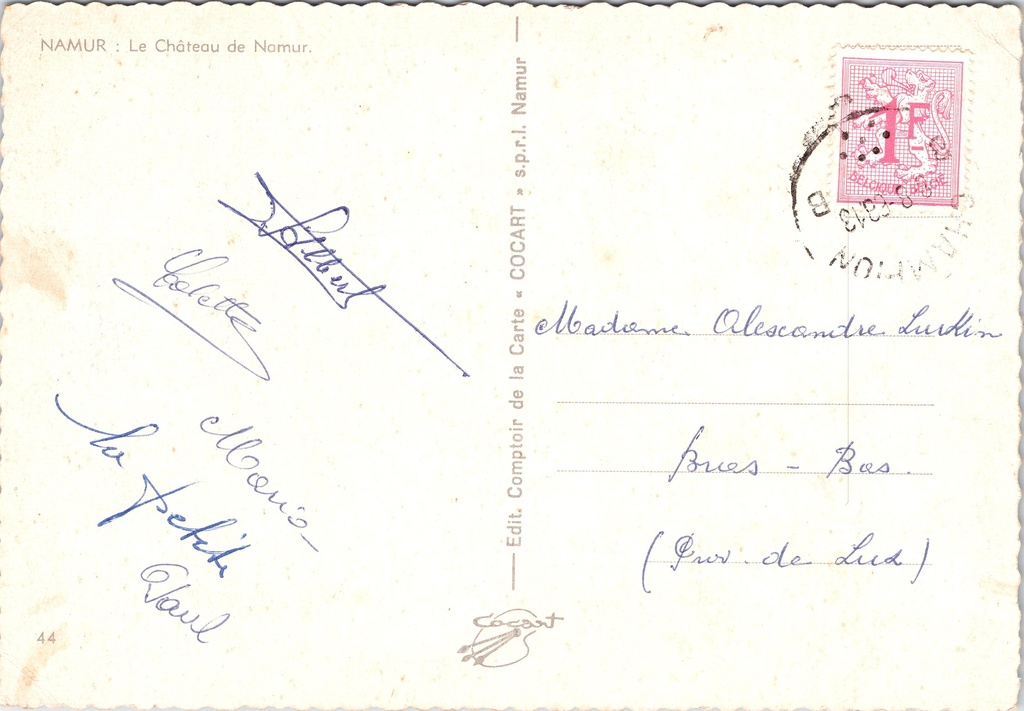 NAMUR : Le Château de Namur.
Albert
Colette
Maria
la petite
Paul
44
Edit. Comptoir de la Carte « COCART » s.p.r.l. Namur
Cocart
1F
BELGIQUE BELGIË
CHAMPION
B
Madame Alexandre Lurkin
Bras - Bas.
(Prov. de Lux)